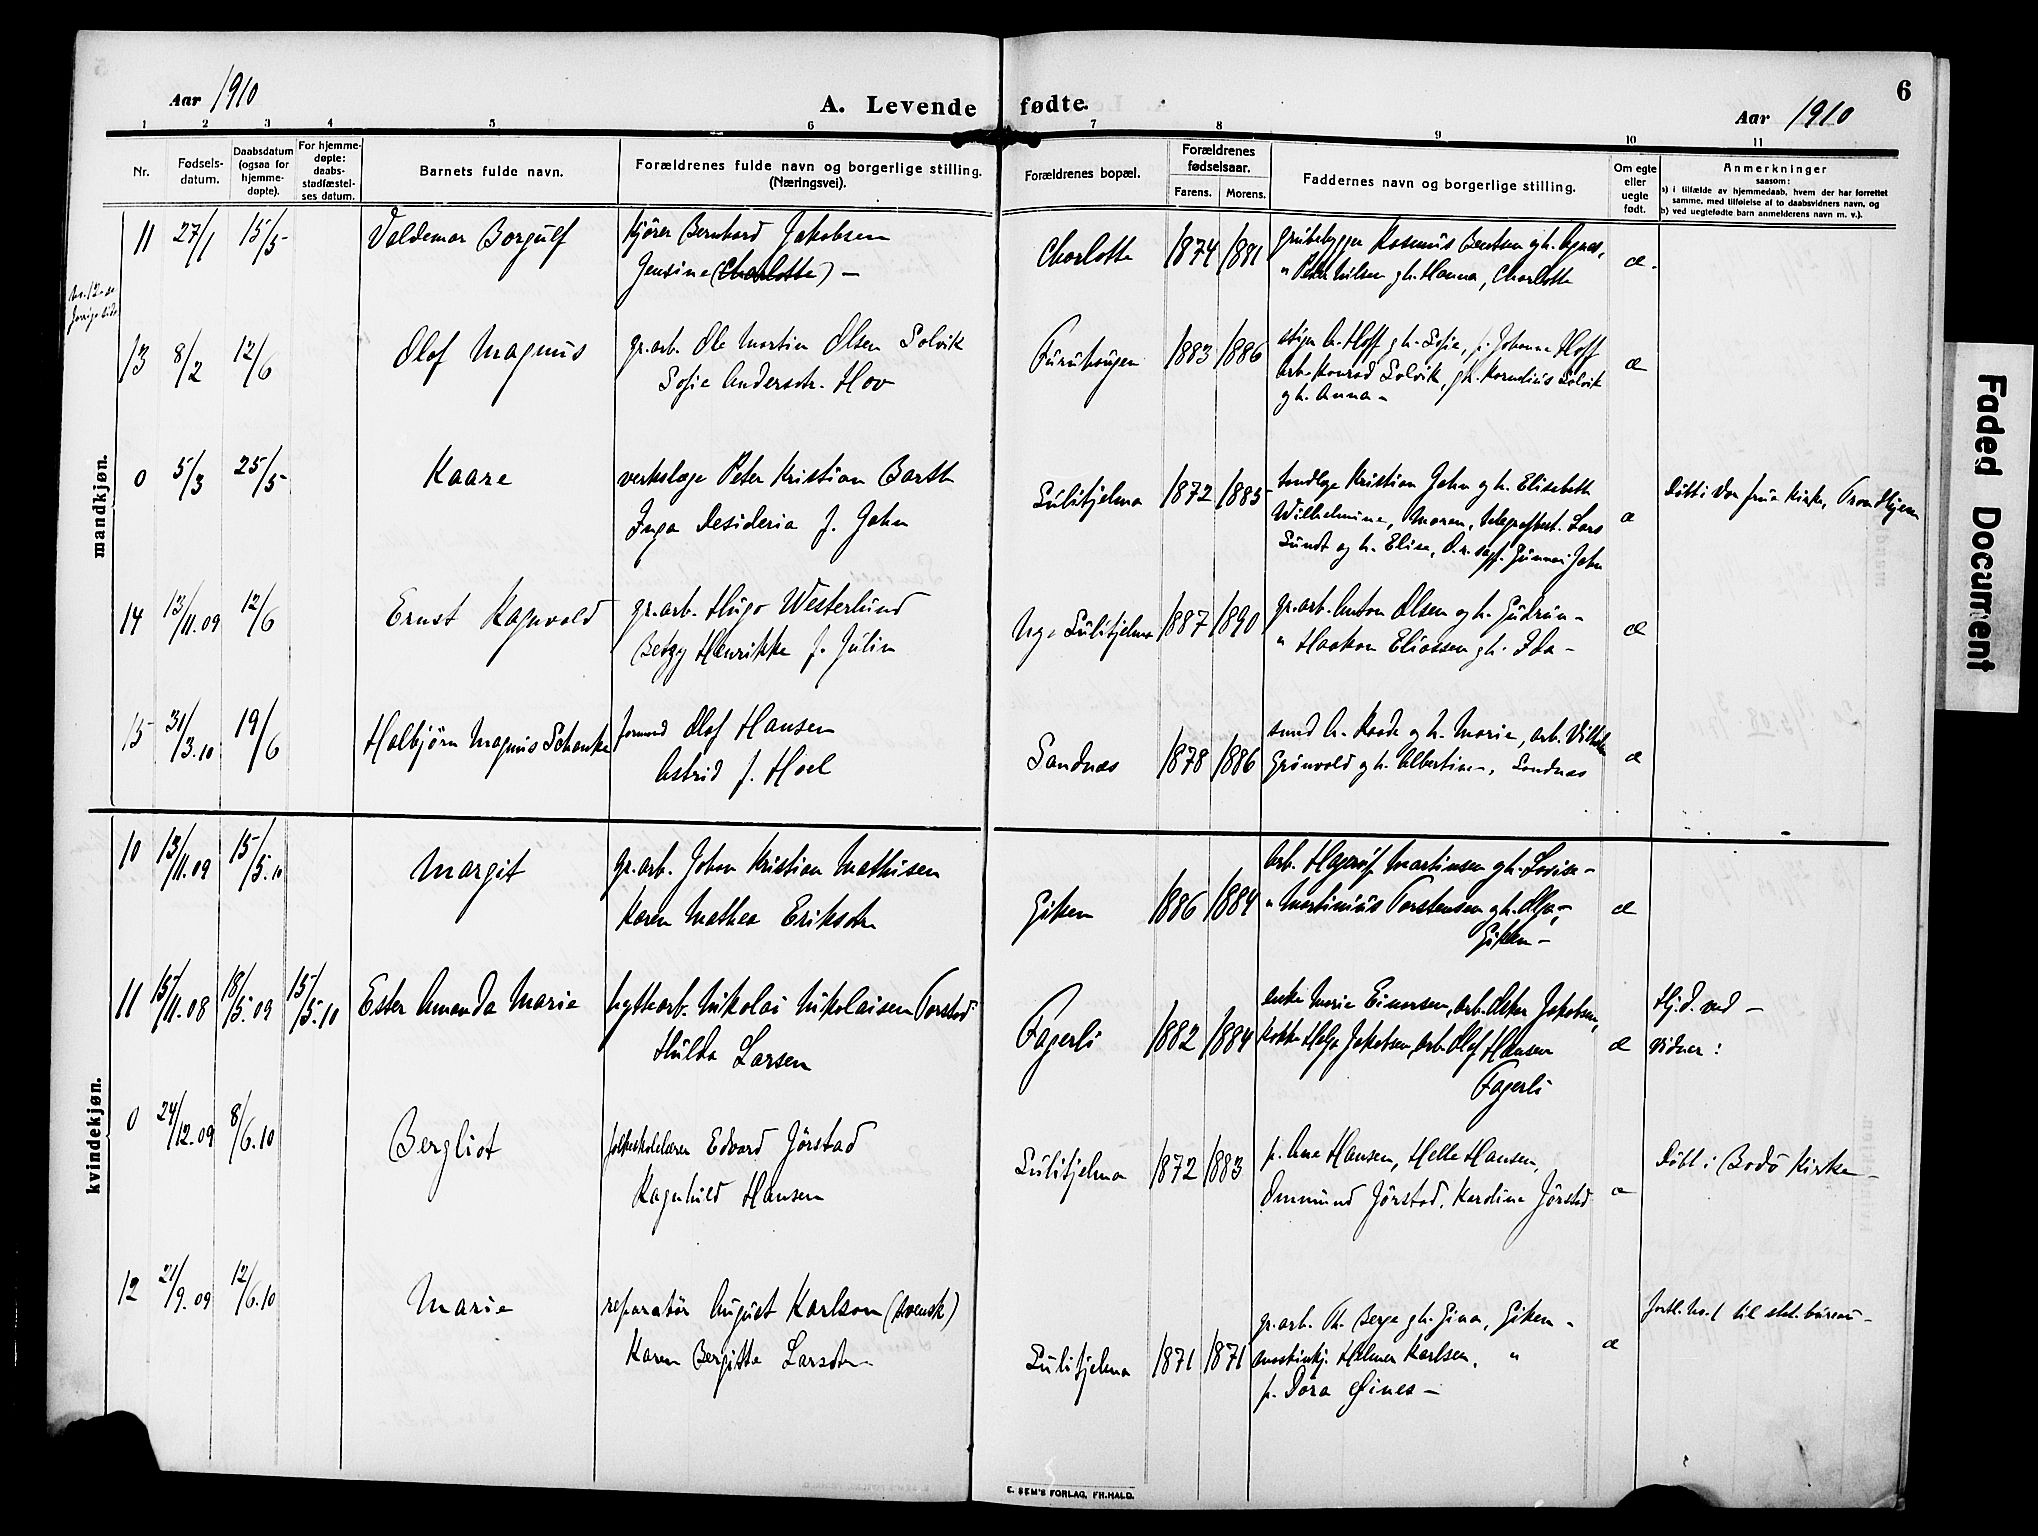 Aar 1910
A. Levende fødte.
Aar 1910
6
1 2 3 4 5 6 7 8 9 10 11
Nr.
Fødsels-
datum.
Daabsdatum
(ogsaa for
hjemme-
døpte).
For hjemme-
døpte:
daabs-
stadfæstel-
ses datum.
Barnets fulde navn.
Forældrenes fulde navn og borgerlige stilling.
(Næringsvei).
Forældrenes bopæl.
Forældrenes
fødselsaar.
Farens. Morens.
Faddernes navn og borgerlige stilling.
Om egte
eller
uegte
født.
Anmerkninger
saasom:
a) i tilfælde av hjemmedaab, hvem der har forrettet
samme, med tilføielse af to daabsvidners navn, og
b) ved uegtefødte barn anmelderens navn m. v.).
mandkjøn.
11 27/1 15/5 Valdemar Borgulf
kjører Bernhard Jakobsen
Jensine (Charlotte) –
Charlotte 1874 1881
grubebygger Rasmus Bentsen gh. Agnes,
" Peder Nilsen gh. Hanna, Charlotte
æ.
13 8/2 12/6 Olaf Magnus
gr.arb. Ole Martin Olsen Solvik
Sofie Andersdtr. Hov
Furuhaugen 1883 1886
stiger A. Hoff gh. Sofie, p. Johanna Hoff
arb. Konrad Solvik, gh. Kornelius Solvik
gh. Anna –
æ
0 5/3 25/5 Kaare
verkslæge Peter Kristian Barth
Inga Desideria f. Jahn
Sulitjelma 1872 1885
tandlæge Kristian Jahn og h. Elisabeth
Wilhelmine, Moren, telegrafbest. Lars
Sundt og h. Elise, Gunnar Jahn
æ
Døbt i Vor frue Kirke, Trondhjem
14 13/11.09 12/6 Ernst Ragnvald
gr.arb. Hugo Westerlund
Betzy Henrikke f. Julin
Ny-Sulitjelma 1887 1890
gr.arb. Anton Olsen og h. Gudrun –
" Haakon Eliassen gh. Ida –
æ
15 31/3.10 19/6 Halbjørn Magnus Schanke
formand Olaf Hansen
Astrid f. Hoel
Sandnes 1878 1886
smed A. Raade og h. Marie, arb. Vilhelm
Grønvold gh. Albertine, Sandnes
æ
kvindekjøn.
10 13/11.09 15/5.10 Margit
gr.arb. Johan Kristian Mathisen
Karen Mathea Eriksdtr.
Giken 1886 1884
arb. Martinsen gh. Lovise –
" Martinius Torstensen gh. Olga,
Giken –
æ
11 15/11.08 18/5.09 15/5.10 Ester Amanda Marie
hyttearb. Nikolai Nikolaisen Torstad
Hulda Larsen
Fagerli 1882 1884
enke Marie Einarsen, arb. Oskar Jakobsen,
kokke Helga Jakobsen, arb. Olaf Hansen
Fagerli
æ
Hj.d. ved –
Vidner:
0 24/12.09 8/6.10 Bergliot
folkeskolelærer Edvard Jørstad
Ragnhild Hansen
Sulitjelma 1872 1883
p. Ane Hansen, Helle Hansen,
Ommund Jørstad, Karoline Jørstad
æ
Døbt i Bodø Kirke –
12 21/9.09 12/6.10 Marie
reparatør August Karlson (svensk)
Karen Bergitte Larsdtr –
Sulitjelma 1871 1871
gr.arb. Th. Berge gh. Gina, Giken –
maskinkj. Hilmer Karlsen, "
p. Dora Sines –
æ
fortl. No. 1 til stat. bureau –
E. SEM'S FORLAG, FR.HALD.
Faded Document